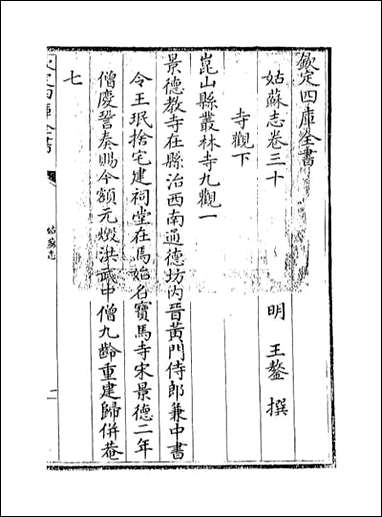 欽定四庫全書
姑蘇志卷三十
明 王鏊 撰
寺觀下
崑山縣叢林寺九觀一
景德教寺在縣治西南通德坊內晉黃門侍郎兼中書
令王珉捨宅建祠堂在焉始名寶馬寺宋景德二年
僧慶誾奏賜今額元燬洪武中僧九齡重建歸併菴
七
欽定四庫全書
姑蘇志
一